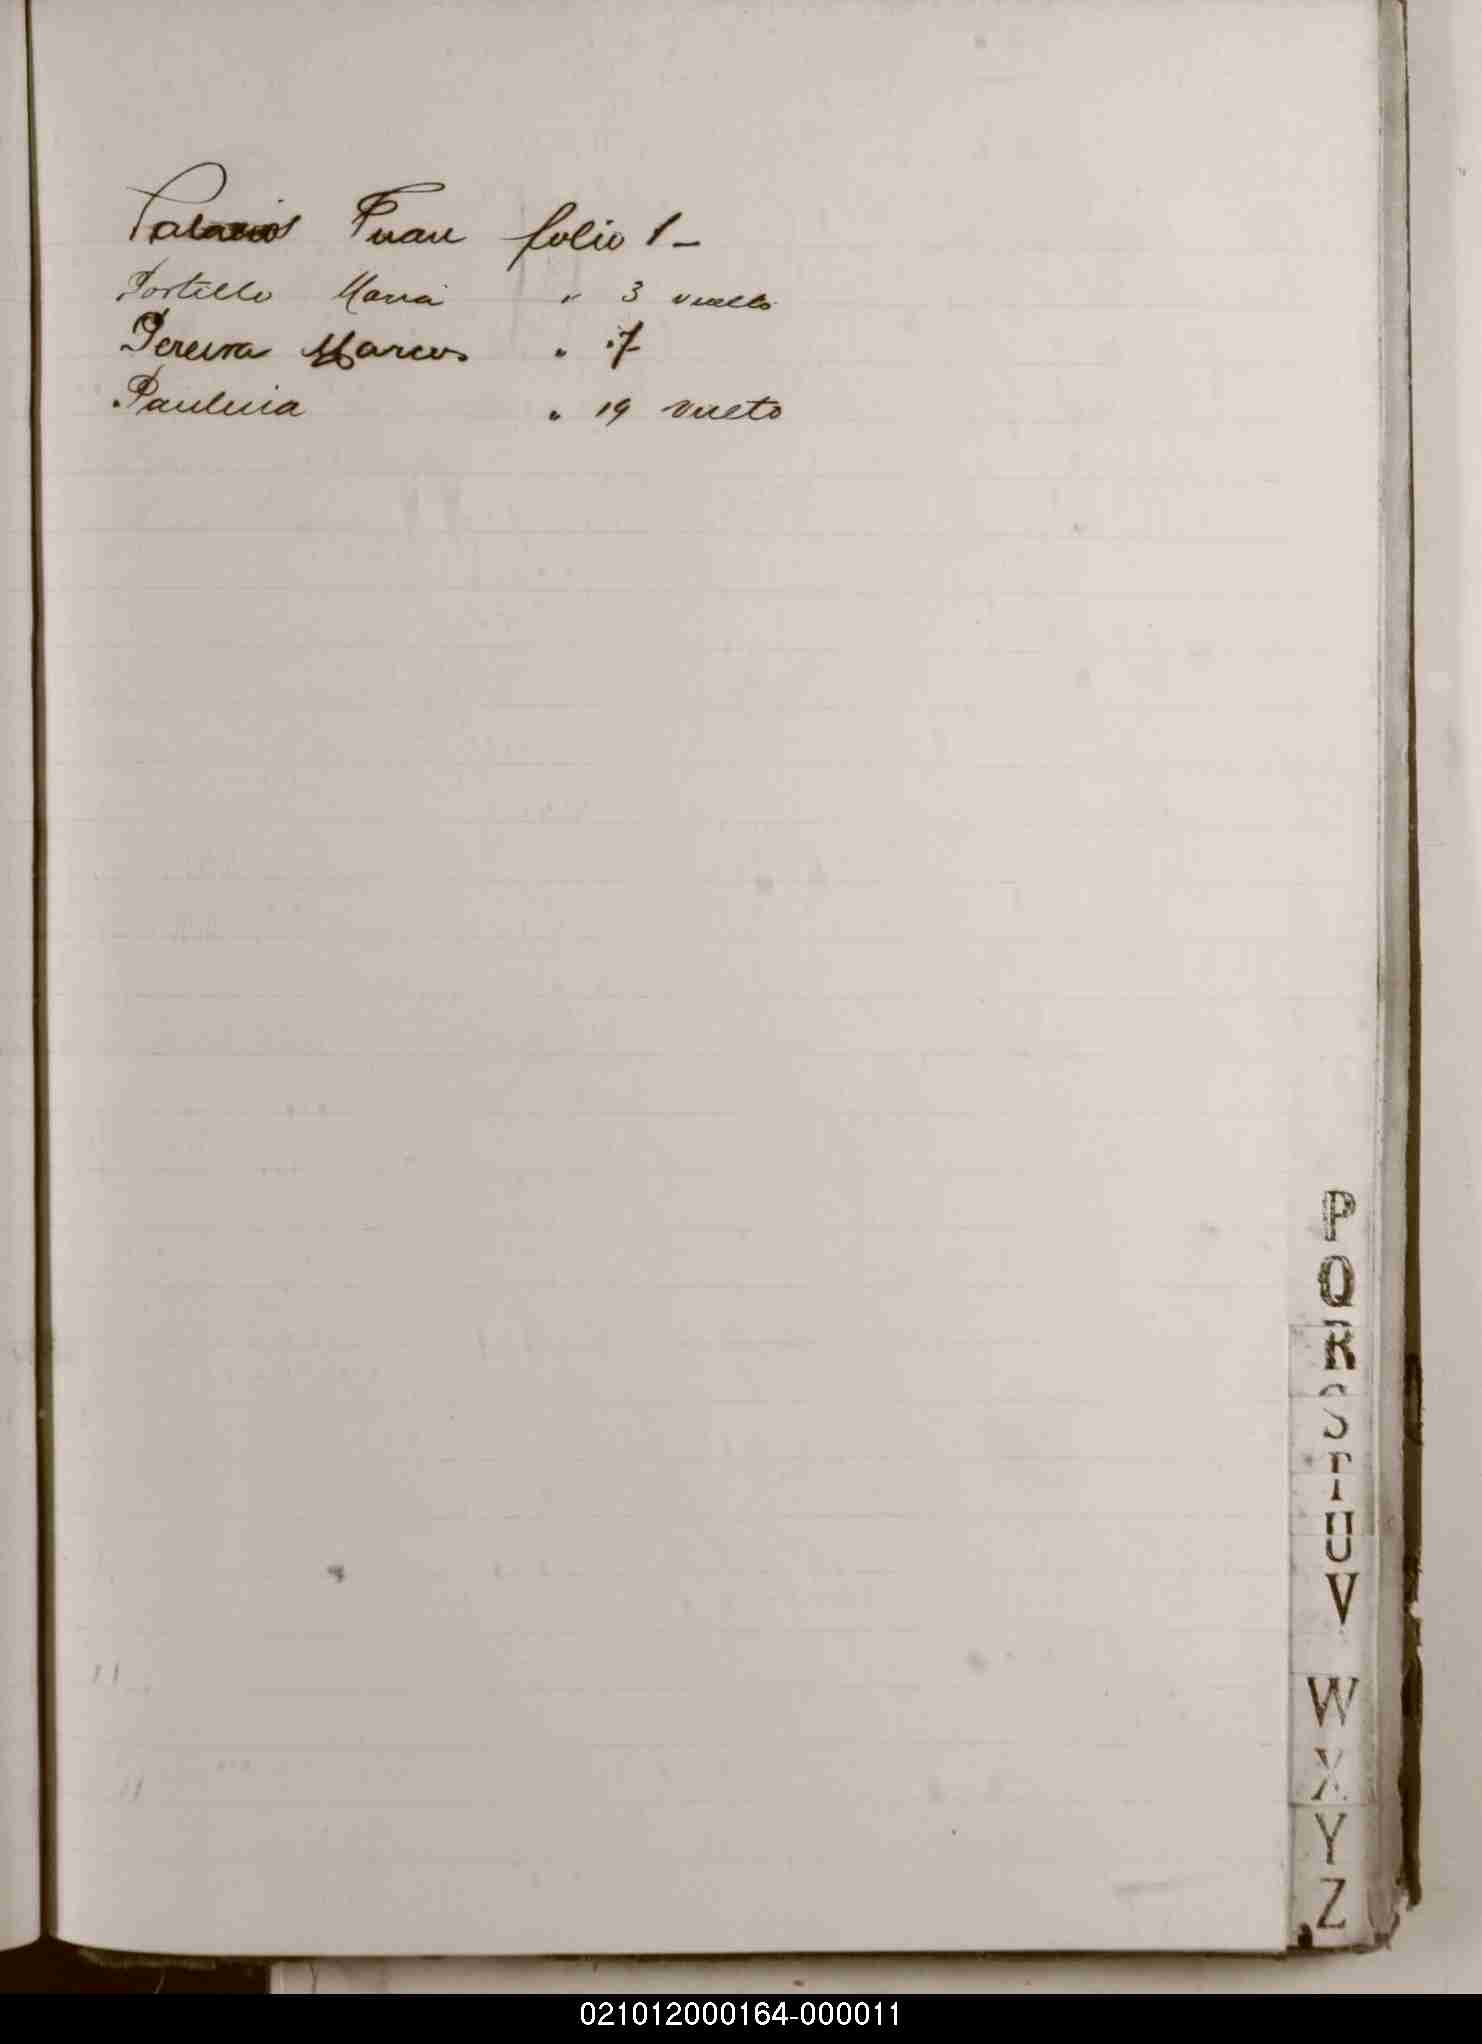 Palacios Juan folio 1-
Portillo Maria " 3 vuelto
Pereira Marcos " 7
Paulina " 19 vuelto
P
Q
R
S
T
U
V
W
X
Y
Z
021012000164-000011